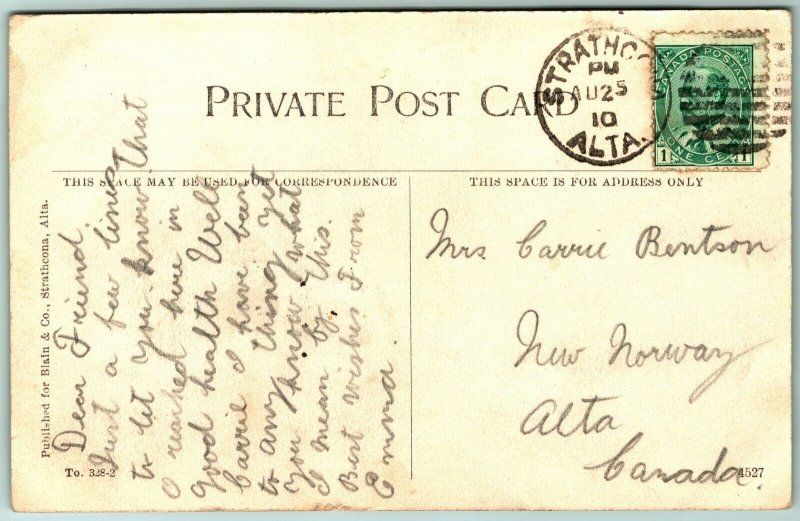 PRIVATE POST CARD
STRATHCO
PM
AU 25
10
ALTA.
CANADA POSTAGE
1 ONE CENT 1
THIS SPACE MAY BE USED FOR CORRESPONDENCE
THIS SPACE IS FOR ADDRESS ONLY
Published for Blain & Co., Strathcona, Alta.
Dear Friend
Just a few lines
to let you know that
I reached here in
good health Well
Carrie I have been
to any thing yet
you know what
I mean by this.
Best wishes From
Emma.
Mrs Carrie Bentson
New Norway
Alta
Canada.
To. 328-2
4527